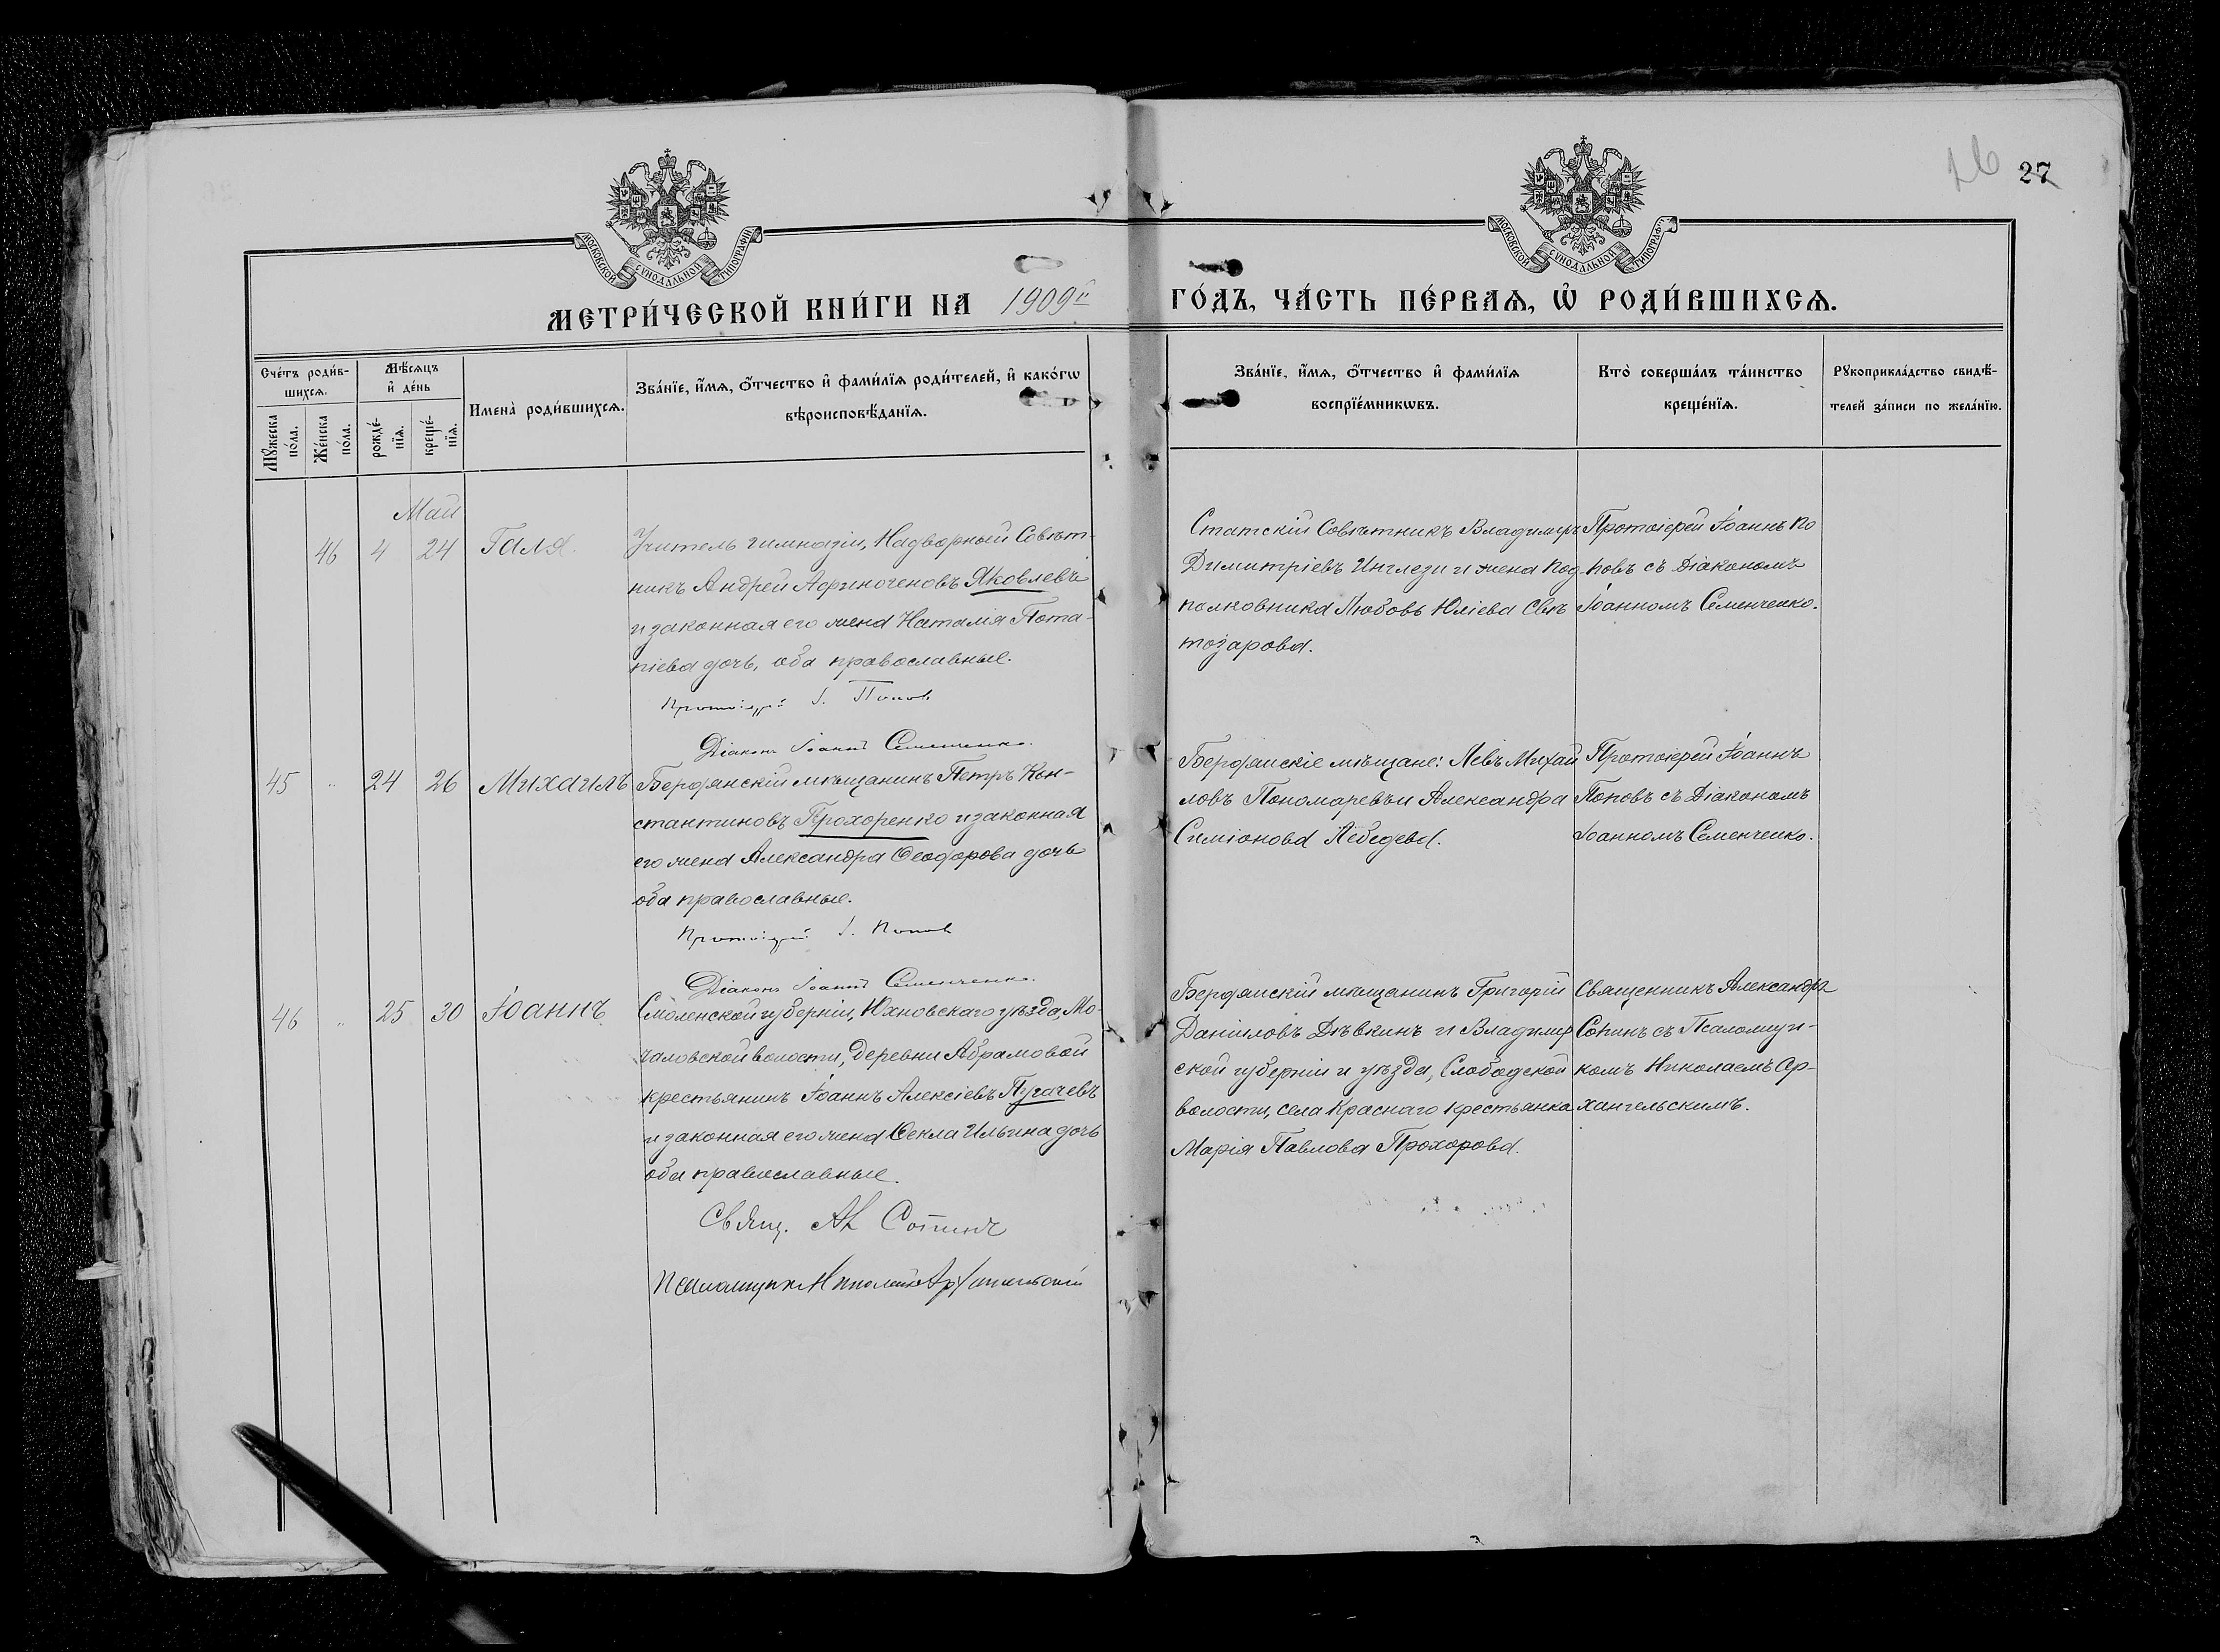 26 27
МОСКОВСКОЙ СѴНОДАЛЬНОЙ ТИПОГРАФІИ
МОСКОВСКОЙ СѴНОДАЛЬНОЙ ТИПОГРАФІИ
МЕТРИ́ЧЕСКОЙ КНИ́ГИ НА 1909й ГО́ДЪ, ЧА́СТЬ ПЕ́РВАѦ, Ѡ҆ РОДИ́ВШИХСѦ.
Сче́тъ роди́в-
шихсѧ.
Мѣ́сѧцъ
и҆ де́нь
Мꙋ́жеска
по́ла.
Же́нска
по́ла.
рожде́-
нїѧ.
креще́-
нїѧ.
Имена̀ роди́вшихсѧ.
Зва́нїе, и҆́мѧ, ѻ҆́тчество и҆ фами́лїѧ роди́телей, и҆ како́гѡ
вѣроисповѣ́данїѧ.
Зва́нїе, и҆́мѧ, ѻ҆́тчество и҆ фами́лїѧ
воспрїе́мникѡвъ.
Кто̀ соверша́лъ та́инство
креще́нїѧ.
Рꙋкоприкла́дство свидѣ́-
телей за́писи по жела́нїю.
Май
46 4 24 Галя.
Учитель гимназіи, Надворный Совѣт-
никъ Андрей Афиногеновъ Яковлевъ
и законная его жена Наталія Пота-
піева дочь, оба православные.
Протоіерей І. Попов
Діаконъ Іоаннъ Семенченко.
Статскій Совѣтникъ Владимеръ
Димитріевъ Инглези и жена под-
полковника Любовь Юліева Свѣ
тозарова.
Протоіерей Іоаннъ По
повъ съ Діакономъ
Іоанномъ Семенченко.
45 " 24 26 Михаилъ
Бердянскій мѣщанинъ Петръ Кон-
стантиновъ Прохоренко и законная
его жена Александра Ѳеодорова дочь
оба православные.
Протоіерей І. Попов
Діаконъ Іоаннъ Семенченко.
Бердянскіе мѣщане: Левъ Михаи
ловъ Пономаревъ и Александра
Симіонова Лебедева.
Протоіерей Іоаннъ
Поповъ съ Діакономъ
Іоанномъ Семенченко.
46 " 25 30 Іоаннъ
Смоленской губерніи, Юхновскаго уѣзда, Мо-
чаловской волости, деревни Абрамовой
крестьянинъ Іоаннъ Алексіевъ Пугачевъ
и законная его жена Ѳекла Ильина дочь
оба православные.
Свящ. Ал Сопинъ
Псаломщикъ Николай Архангельскій
Бердянскій мѣщанинъ Григорій
Даніиловъ Дѣвкинъ и Владимір
ской губерніи и уѣзда, Слободской
волости, села Краснаго крестьянка
Марія Павлова Прохорова.
Священникъ Александръ
Сопинъ съ Псаломщи-
комъ Николаемъ Ар-
хангельскимъ.